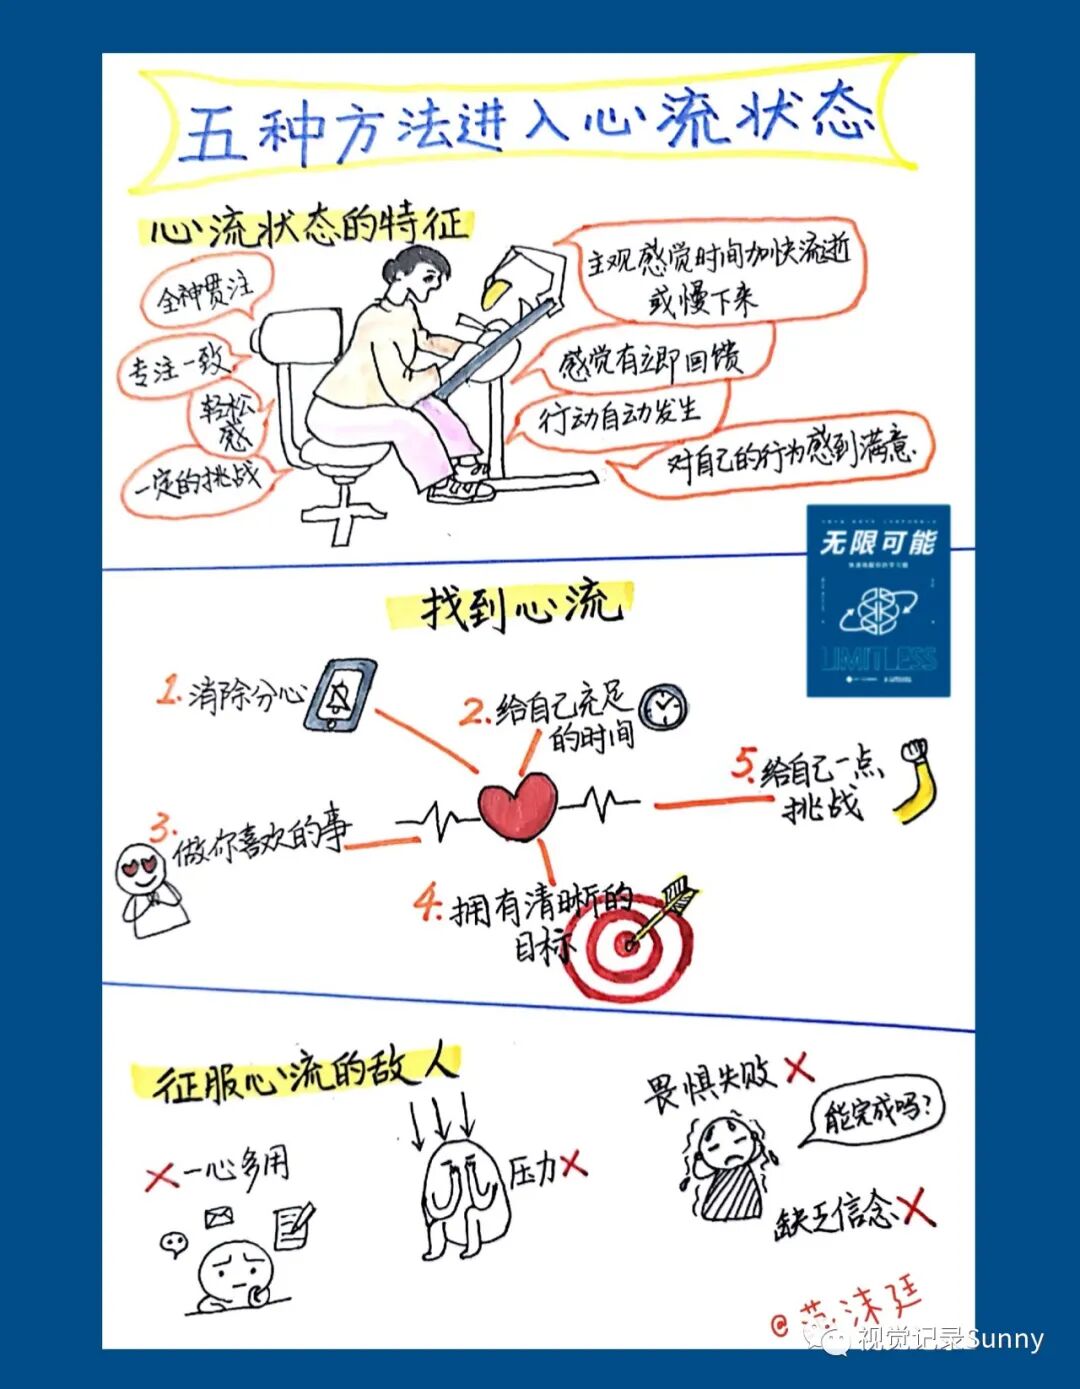 五种方法进入心流状态
心流状态的特征
全神贯注
专注一致
轻松
感
一定的挑战
主观感觉时间加快流逝
或慢下来
感觉有立即回馈
行动自动发生
对自己的行为感到满意
无限可能
LIMITLESS
找到心流
1.消除分心
2.给自己充足
的时间
3.做你喜欢的事
4.拥有清晰的
目标
5.给自己一点
挑战
征服心流的敌人
一心多用
压力
畏惧失败
能完成吗?
缺乏信念
视觉记录Sunny